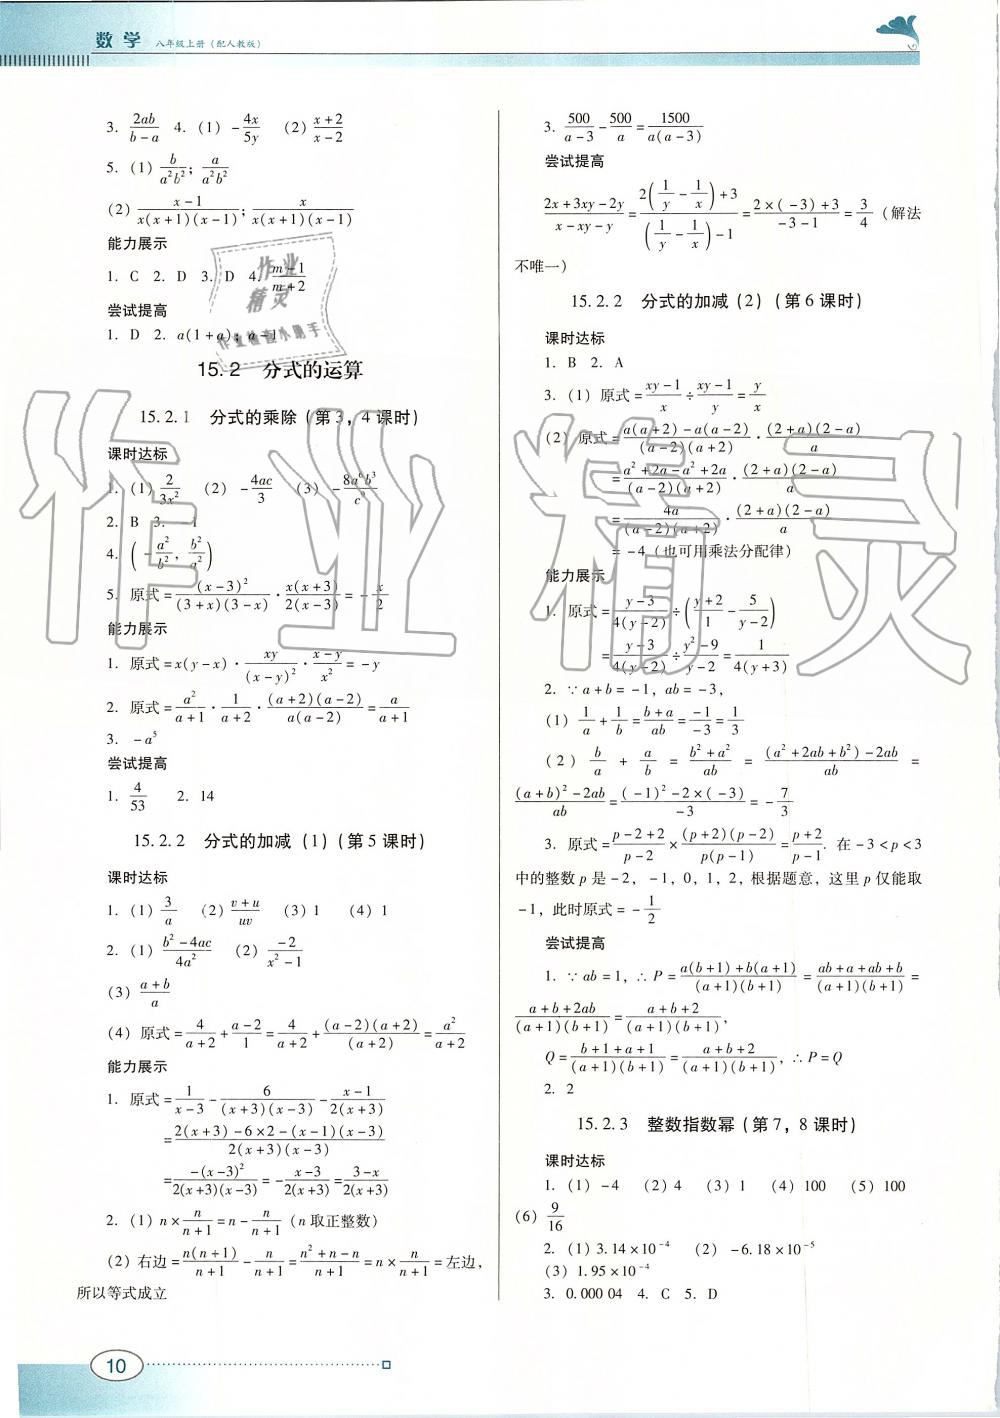 数学 八年级上册（配人教版）
3. \frac{2ab}{b-a} 4. (1) -\frac{4x}{5y} (2) \frac{x+2}{x-2}
5. (1) \frac{b}{a^2b^2}; \frac{a}{a^2b^2}
(2) \frac{x-1}{x(x+1)(x-1)}; \frac{x}{x(x+1)(x-1)}
能力展示
1. C 2. D 3. D 4. \frac{m-1}{m+2}
尝试提高
1. D 2. a(1+a); a-1
15.2 分式的运算
15.2.1 分式的乘除（第3，4课时）
课时达标
1. (1) \frac{2}{3x^2} (2) -\frac{4ac}{3} (3) -\frac{8a^6b^3}{c^9}
2. B 3. -1
4. (-\frac{a^2}{b^2}, \frac{b^2}{a^2})
5. 原式=\frac{(x-3)^2}{(3+x)(3-x)}·\frac{x(x+3)}{2(x-3)}=-\frac{x}{2}
能力展示
1. 原式=x(y-x)·\frac{xy}{(x-y)^2}·\frac{x-y}{x^2}=-y
2. 原式=\frac{a^2}{a+1}·\frac{1}{a+2}·\frac{(a+2)(a-2)}{a(a-2)}=\frac{a}{a+1}
3. -a^5
尝试提高
1. \frac{4}{53} 2. 14
15.2.2 分式的加减（1）（第5课时）
课时达标
1. (1) \frac{3}{a} (2) \frac{v+u}{uv} (3) 1 (4) 1
2. (1) \frac{b^2-4ac}{4a^2} (2) \frac{-2}{x^2-1}
(3) \frac{a+b}{a}
(4) 原式=\frac{4}{a+2}+\frac{a-2}{1}=\frac{4}{a+2}+\frac{(a-2)(a+2)}{(a+2)}=\frac{a^2}{a+2}
能力展示
1. 原式=\frac{1}{x-3}-\frac{6}{(x+3)(x-3)}-\frac{x-1}{2(x+3)}
=\frac{2(x+3)-6×2-(x-1)(x-3)}{2(x+3)(x-3)}
=\frac{-(x-3)^2}{2(x+3)(x-3)}=-\frac{x-3}{2(x+3)}=\frac{3-x}{2(x+3)}
2. (1) n×\frac{n}{n+1}=n-\frac{n}{n+1}（n取正整数）
(2) 右边=\frac{n(n+1)}{n+1}-\frac{n}{n+1}=\frac{n^2+n-n}{n+1}=n×\frac{n}{n+1}=左边，
所以等式成立
3. \frac{500}{a-3}-\frac{500}{a}=\frac{1500}{a(a-3)}
尝试提高
\frac{2x+3xy-2y}{x-xy-y}=\frac{2(\frac{1}{y}-\frac{1}{x})+3}{(\frac{1}{y}-\frac{1}{x})-1}=\frac{2×(-3)+3}{-3-1}=\frac{3}{4}（解法
不唯一）
15.2.2 分式的加减（2）（第6课时）
课时达标
1. B 2. A
3. (1) 原式=\frac{xy-1}{x}÷\frac{xy-1}{y}=\frac{y}{x}
(2) 原式=\frac{a(a+2)-a(a-2)}{(a-2)(a+2)}·\frac{(2+a)(2-a)}{a}
=\frac{a^2+2a-a^2+2a}{(a-2)(a+2)}·\frac{(2+a)(2-a)}{a}
=\frac{4a}{(a-2)(a+2)}·\frac{(2+a)(2-a)}{a}
=-4（也可用乘法分配律）
能力展示
1. 原式=\frac{y-3}{4(y-2)}÷(\frac{y+2}{1}-\frac{5}{y-2})
=\frac{y-3}{4(y-2)}÷\frac{y^2-9}{y-2}=\frac{1}{4(y+3)}
2. ∵a+b=-1，ab=-3，
(1) \frac{1}{a}+\frac{1}{b}=\frac{b+a}{ab}=\frac{-1}{-3}=\frac{1}{3}
(2) \frac{b}{a}+\frac{a}{b}=\frac{b^2+a^2}{ab}=\frac{(a^2+2ab+b^2)-2ab}{ab}=
\frac{(a+b)^2-2ab}{ab}=\frac{(-1)^2-2×(-3)}{-3}=-\frac{7}{3}
3. 原式=\frac{p-2+2}{p-2}×\frac{(p+2)(p-2)}{p(p-1)}=\frac{p+2}{p-1}. 在-3<p<3
中的整数p是-2，-1，0，1，2，根据题意，这里p仅能取
-1，此时原式=-\frac{1}{2}
尝试提高
1. ∵ab=1，∴P=\frac{a(b+1)+b(a+1)}{(a+1)(b+1)}=\frac{ab+a+ab+b}{(a+1)(b+1)}=
\frac{a+b+2ab}{(a+1)(b+1)}=\frac{a+b+2}{(a+1)(b+1)}，
Q=\frac{b+1+a+1}{(a+1)(b+1)}=\frac{a+b+2}{(a+1)(b+1)}，∴P=Q
2. 2
15.2.3 整数指数幂（第7，8课时）
课时达标
1. (1) -4 (2) 4 (3) 1 (4) 100 (5) 100
(6) \frac{9}{16}
2. (1) 3.14×10^{-4} (2) -6.18×10^{-5}
(3) 1.95×10^{-4}
3. 0.000 04 4. C 5. D
10
作业精灵
作业
精灵
作业检查小助手